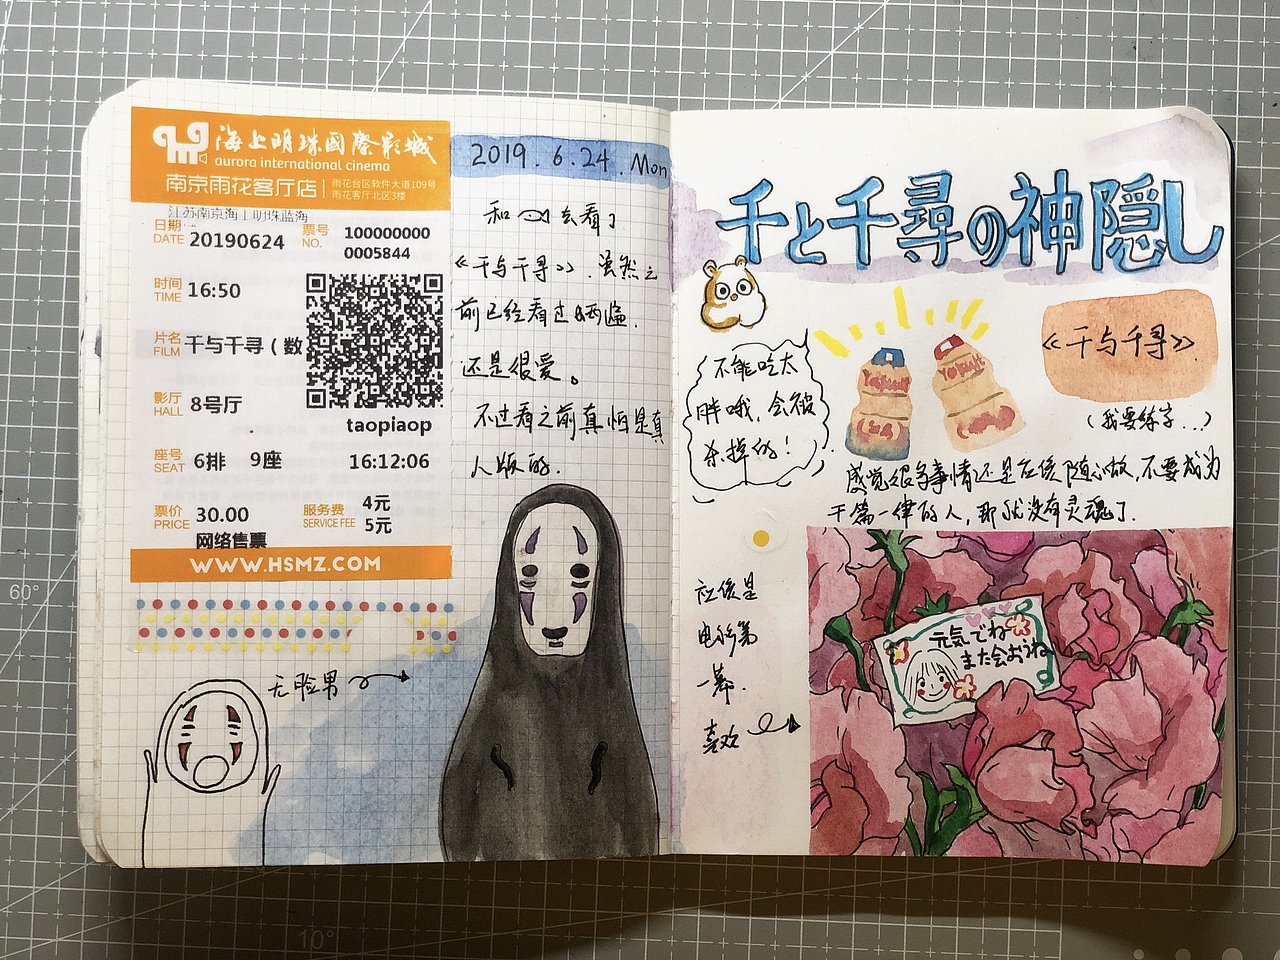 海上明珠國際影城
aurora international cinema
南京雨花客厅店
雨花台区软件大道109号
雨花客厅北区3楼
江苏南京海上明珠蓝海
日期 DATE 20190624
票号 NO. 100000000
0005844
时间 TIME 16:50
片名 FILM 千与千寻(数
影厅 HALL 8号厅
taopiaop
座号 SEAT 6排 9座
16:12:06
票价 PRICE 30.00
服务费 SERVICE FEE 4元
5元
网络售票
WWW.HSMZ.COM
2019.6.24. Mon
和 去看了
《千与千寻》.虽然之
前已经看过两遍.
还是很爱。
不过看之前真怕是真
人版的.
无脸男
千と千尋の神隠し
不能吃太
胖哦,会被
杀掉的!
Yakult
Yakult
《千与千寻》
(我要练字...)
感觉很多事情还是应该随心做,不要成为
千篇一律的人,那就没有灵魂了.
应该是
电影第
一幕.
喜欢
元気でね
また会おうね
60°
10°